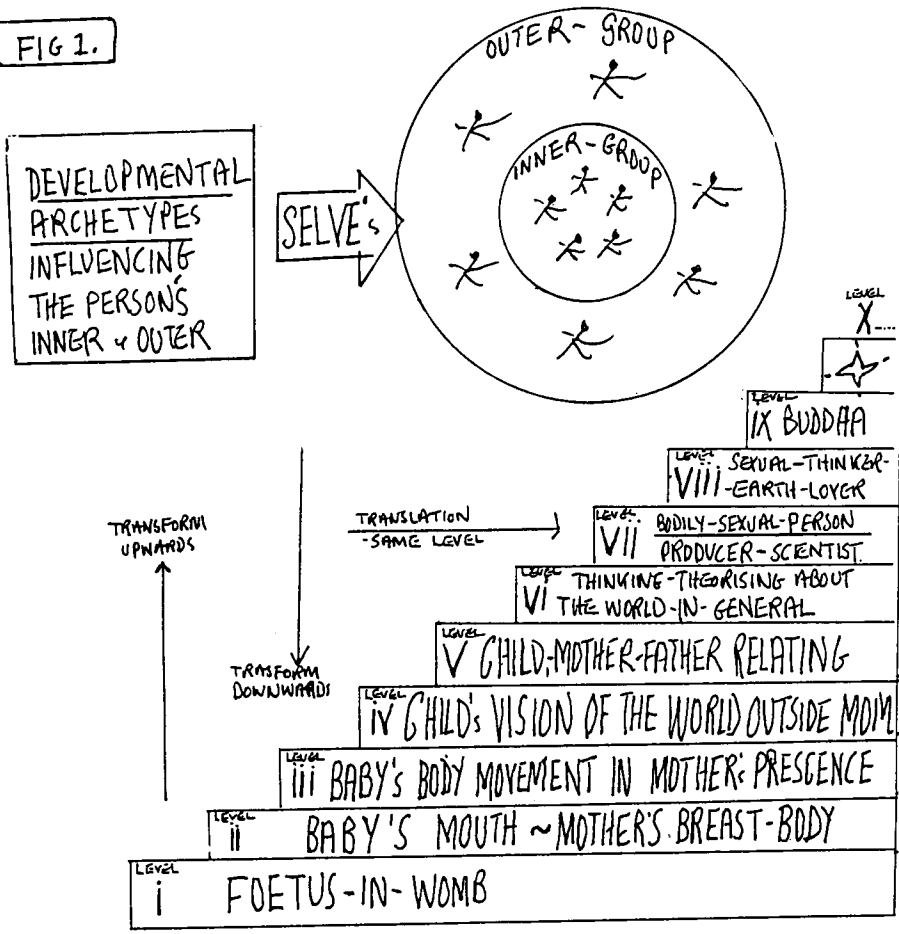 FIG 1.
OUTER-GROUP
INNER-GROUP
DEVELOPMENTAL
ARCHETYPES
INFLUENCING
THE PERSON'S
INNER & OUTER
SELVE's
LEVEL
X....
LEVEL
IX BUDDHA
LEVEL
VIII SEXUAL-THINKER-
-EARTH-LOVER
LEVEL
VII BODILY-SEXUAL-PERSON
PRODUCER-SCIENTIST.
LEVEL
VI THINKING-THEORISING ABOUT
THE WORLD-IN-GENERAL
LEVEL
V CHILD,-MOTHER-FATHER RELATING
LEVEL
iv CHILD's VISION OF THE WORLD OUTSIDE MOM
LEVEL
iii BABY's BODY MOVEMENT IN MOTHER's PRESCENCE
LEVEL
ii BABY'S MOUTH ~ MOTHER'S BREAST-BODY
LEVEL
i FOETUS-IN-WOMB
TRANSFORM
UPWARDS
TRASFORM
DOWNWARDS
TRANSLATION
-SAME LEVEL